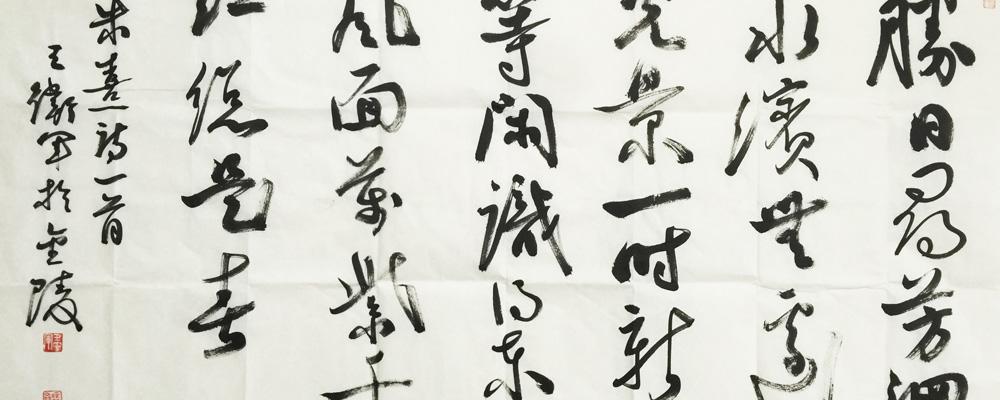 勝日尋芳泗
水濱無邊
光景一時新
等閑識得東
風面萬紫千
紅總是春
朱熹詩一首
王衛軍於金陵